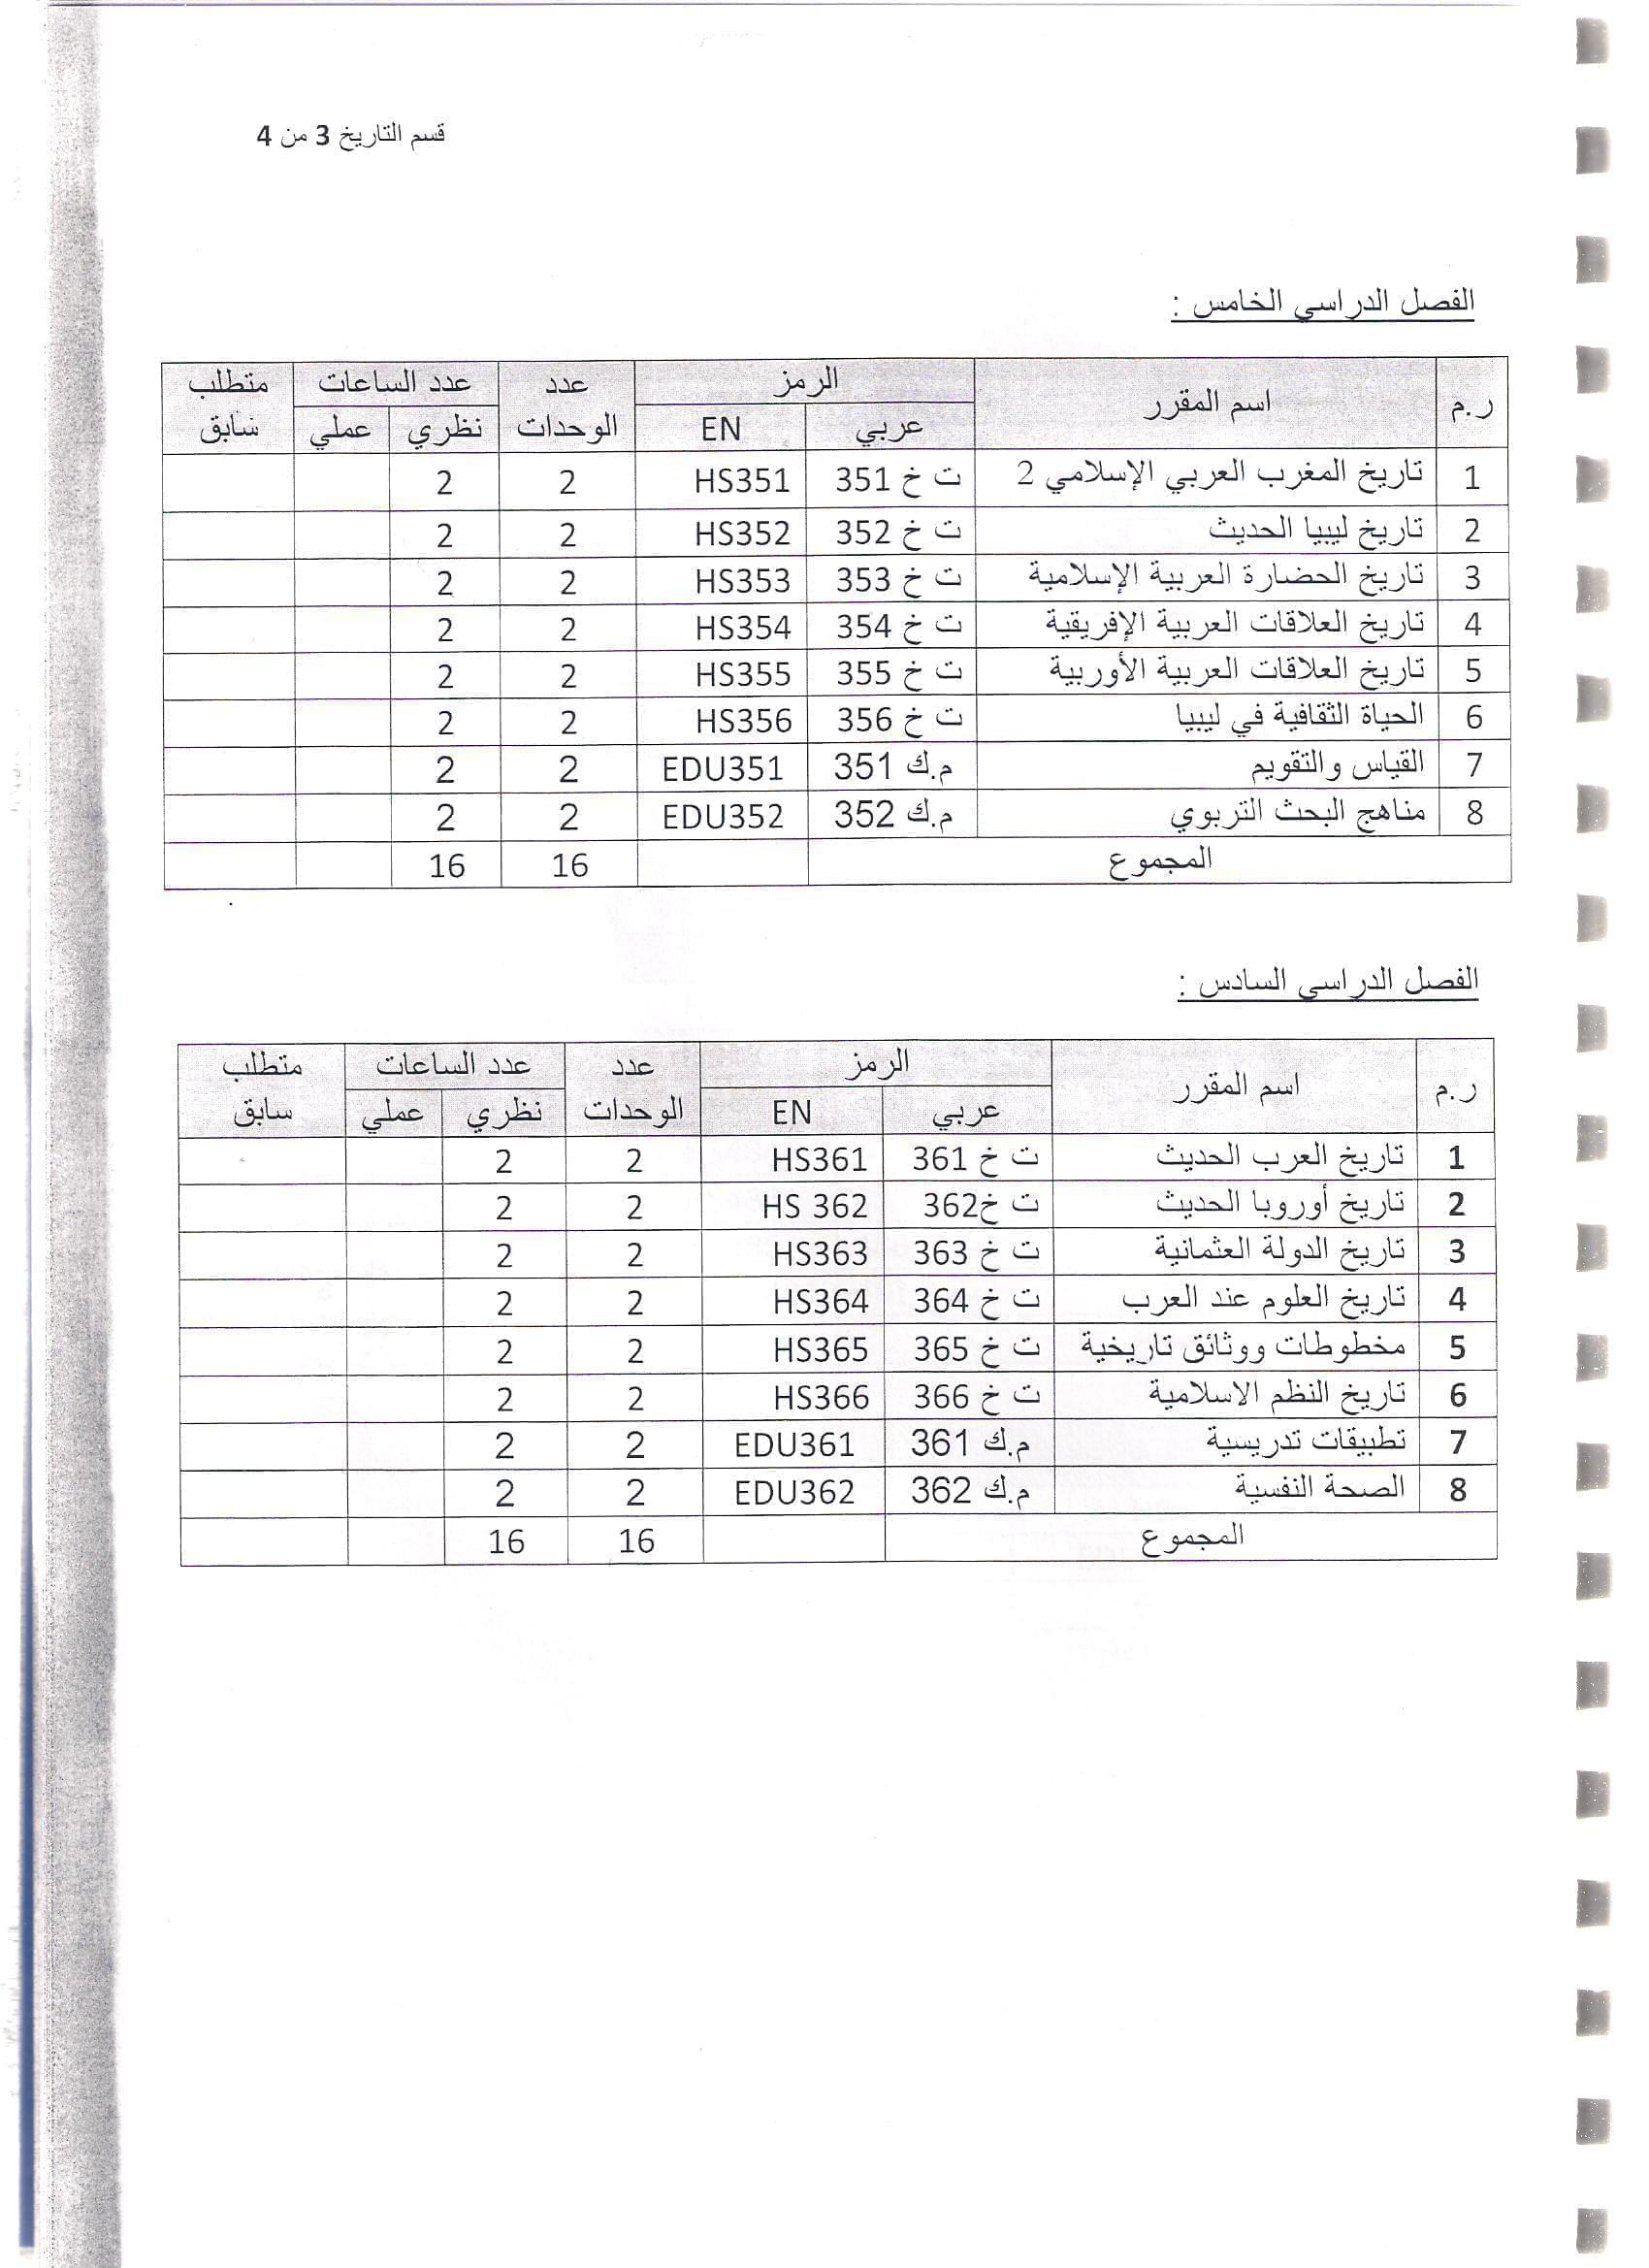 قسم التاريخ 3 من 4
الفصل الدراسي الخامس :
ر.م اسم المقرر الرمز عدد الوحدات عدد الساعات متطلب سابق
عربي EN نظري عملي
1 تاريخ المغرب العربي الإسلامي 2 ت خ 351 HS351 2 2
2 تاريخ ليبيا الحديث ت خ 352 HS352 2 2
3 تاريخ الحضارة العربية الإسلامية ت خ 353 HS353 2 2
4 تاريخ العلاقات العربية الإفريقية ت خ 354 HS354 2 2
5 تاريخ العلاقات العربية الأوربية ت خ 355 HS355 2 2
6 الحياة الثقافية في ليبيا ت خ 356 HS356 2 2
7 القياس والتقويم م.ك 351 EDU351 2 2
8 مناهج البحث التربوي م.ك 352 EDU352 2 2
المجموع 16 16
الفصل الدراسي السادس :
ر.م اسم المقرر الرمز عدد الوحدات عدد الساعات متطلب سابق
عربي EN نظري عملي
1 تاريخ العرب الحديث ت خ 361 HS361 2 2
2 تاريخ أوروبا الحديث ت خ362 HS 362 2 2
3 تاريخ الدولة العثمانية ت خ 363 HS363 2 2
4 تاريخ العلوم عند العرب ت خ 364 HS364 2 2
5 مخطوطات ووثائق تاريخية ت خ 365 HS365 2 2
6 تاريخ النظم الاسلامية ت خ 366 HS366 2 2
7 تطبيقات تدريسية م.ك 361 EDU361 2 2
8 الصحة النفسية م.ك 362 EDU362 2 2
المجموع 16 16